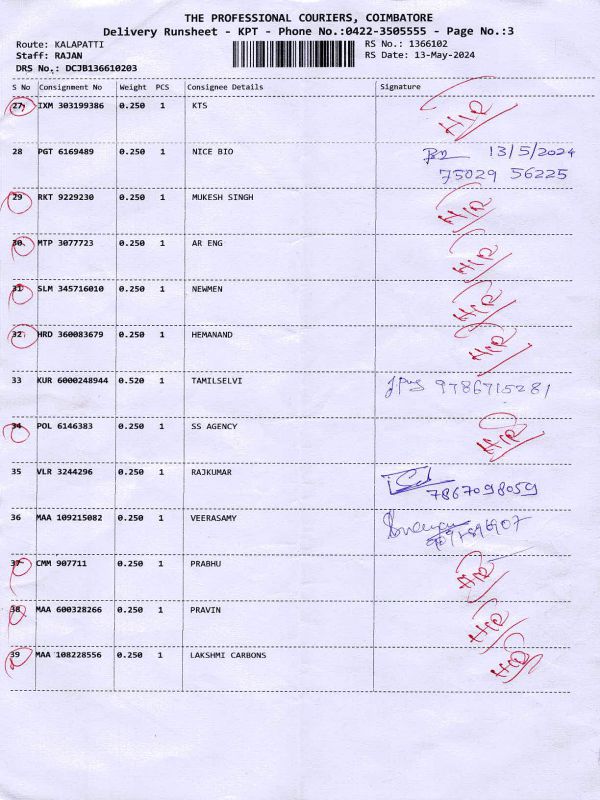 THE PROFESSIONAL COURIERS, COIMBATORE
Delivery Runsheet - KPT - Phone No.:0422-3505555 - Page No.:3
Route: KALAPATTI RS No.: 1366102
Staff: RAJAN RS Date: 13-May-2024
DRS No.: DCJB136610203
S No Consignment No Weight PCS Consignee Details Signature
27 IXM 303199386 0.250 1 KTS H/R
28 PGT 6169489 0.250 1 NICE BIO 13/5/2024
75029 56225
29 RKT 9229230 0.250 1 MUKESH SINGH H/R
30 MTP 3077723 0.250 1 AR ENG H/R
31 SLM 345716010 0.250 1 NEWMEN H/R
32 HRD 360083679 0.250 1 HEMANAND H/R
33 KUR 6000248944 0.520 1 TAMILSELVI 9786715281
34 POL 6146383 0.250 1 SS AGENCY H/R
35 VLR 3244296 0.250 1 RAJKUMAR 7867098059
36 MAA 109215082 0.250 1 VEERASAMY
37 CMM 907711 0.250 1 PRABHU H/R
38 MAA 600328266 0.250 1 PRAVIN H/R
39 MAA 108228556 0.250 1 LAKSHMI CARBONS H/R